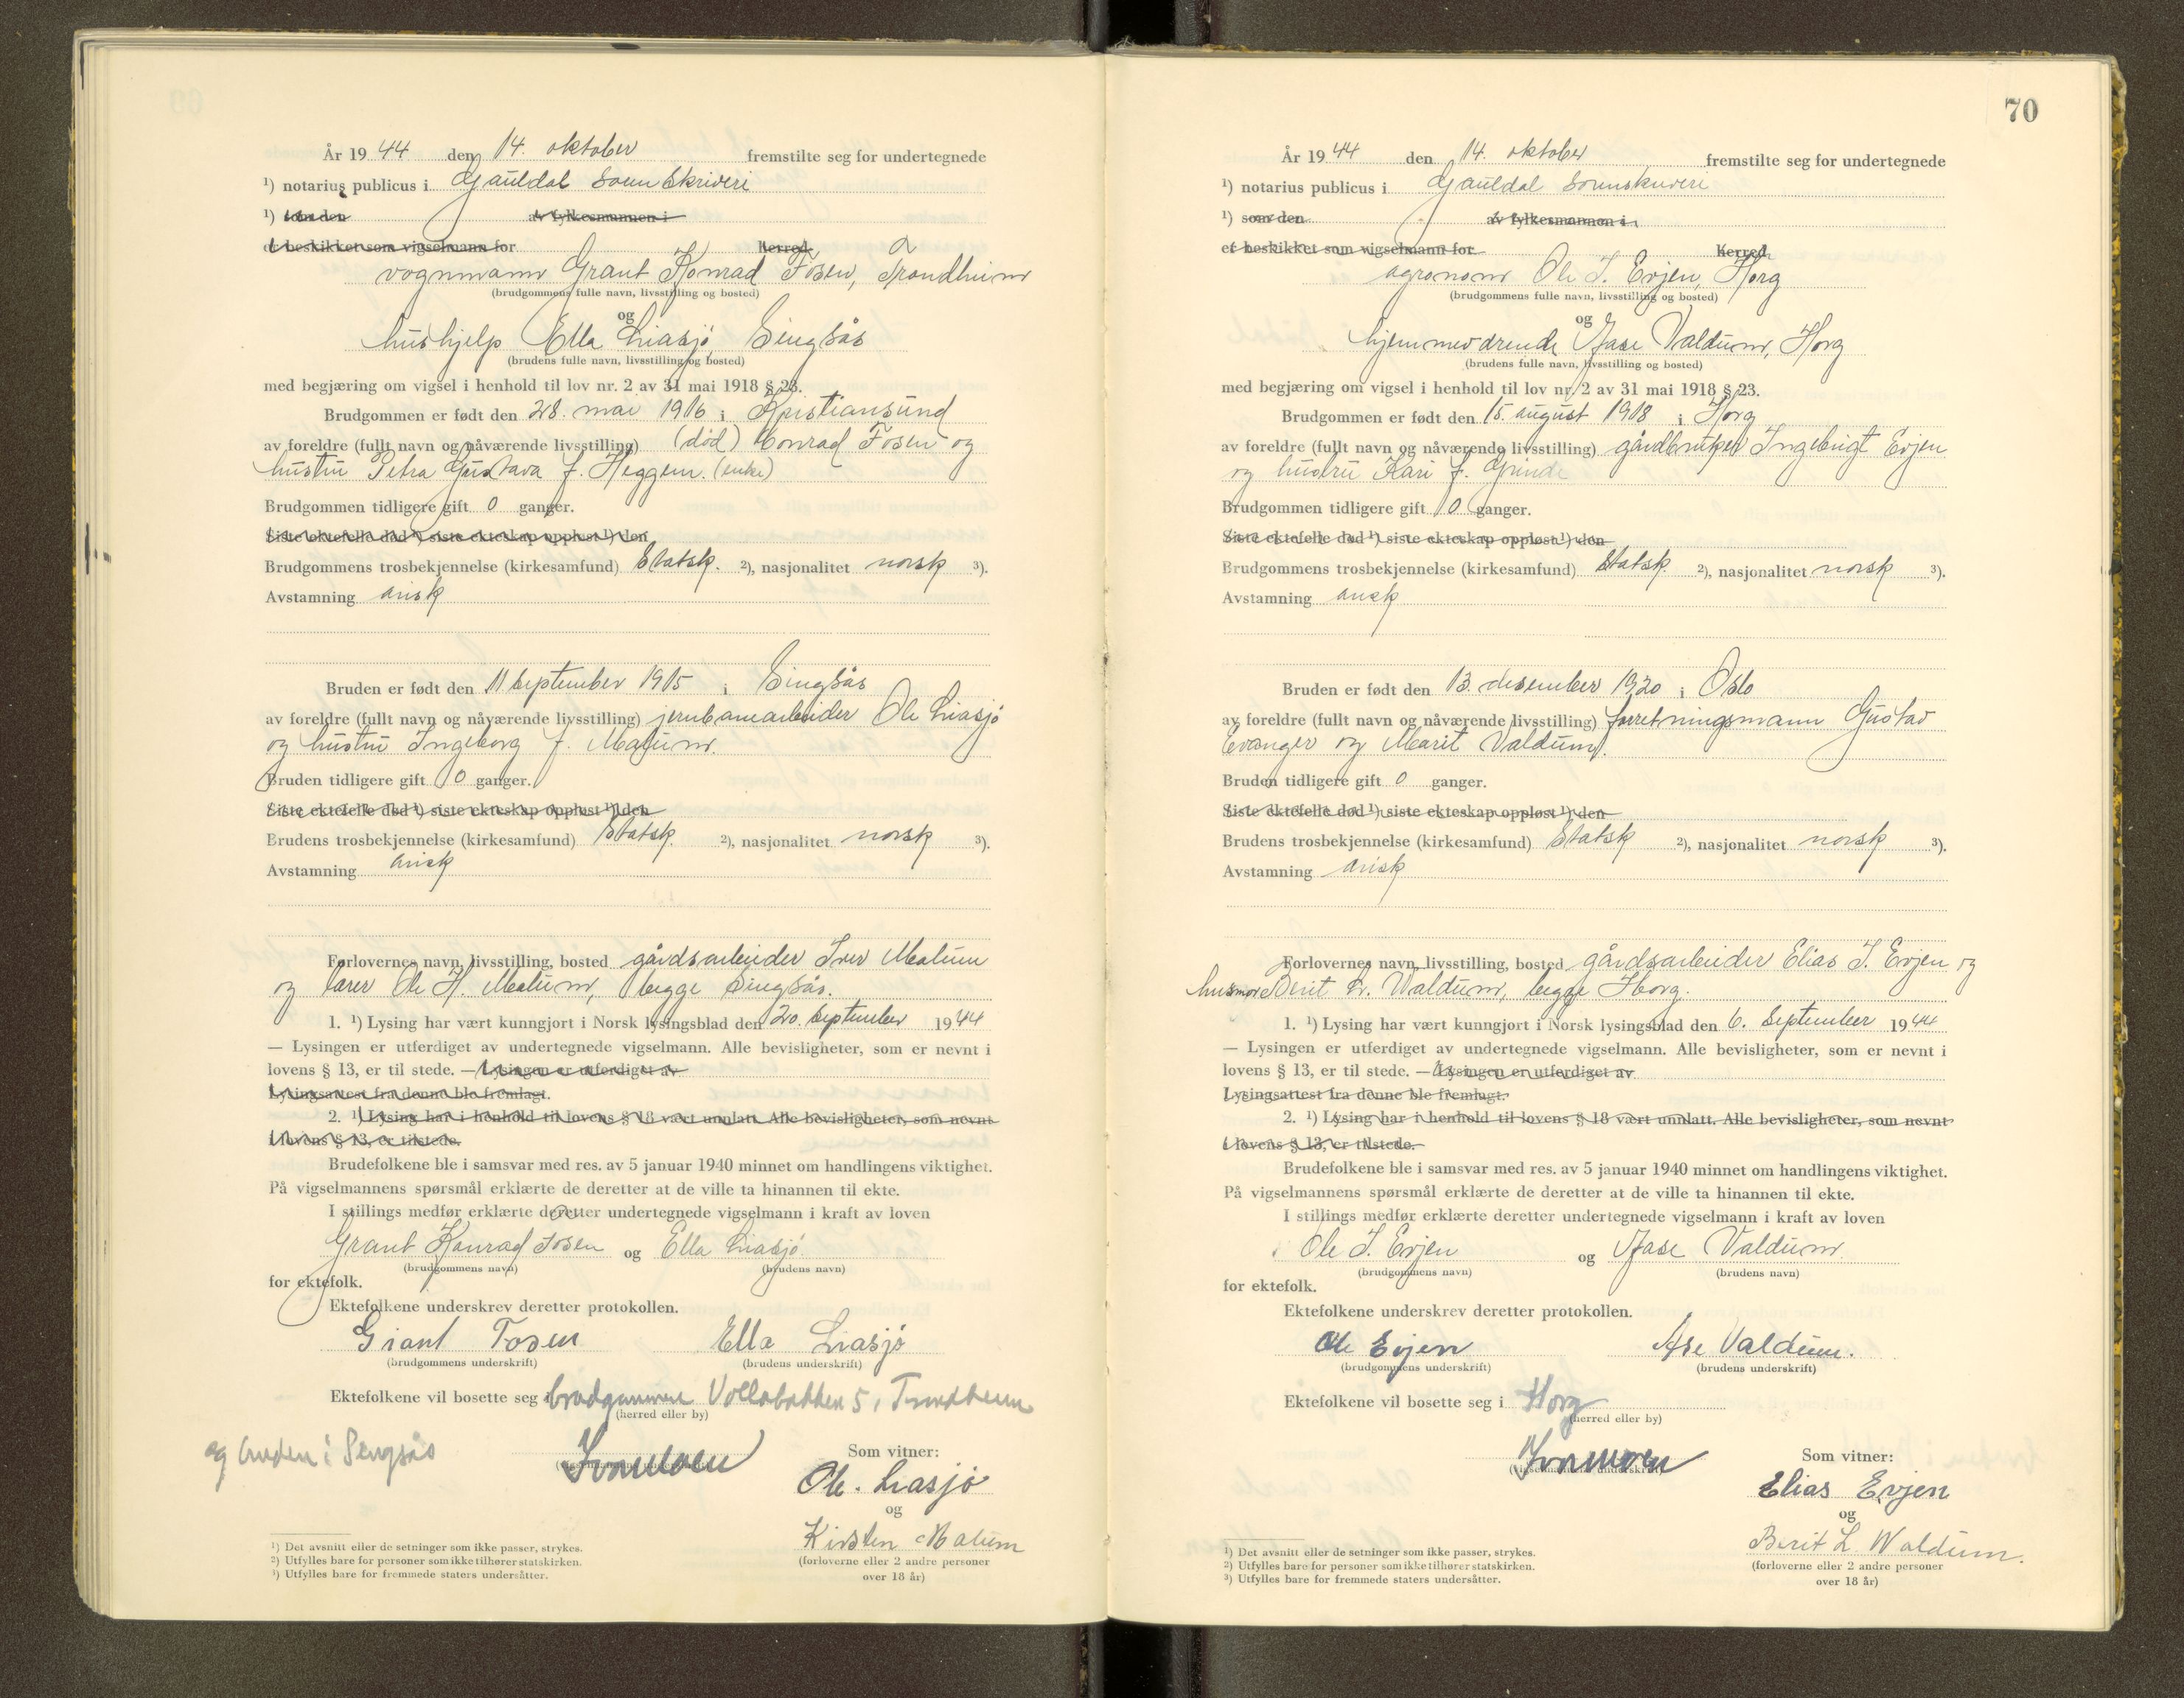 År 19 44 den 14. oktober fremstilte seg for undertegnede
¹) notarius publicus i Gauldal sorenskriveri
¹) som den av fylkesmannen i
er beskikket som vigselmann for herred
vognmann Grant Konrad Fosen, Trondheim
(brudgommens fulle navn, livsstilling og bosted)
og
hushjelp Ella Liasjø, Singsås
(brudens fulle navn, livsstilling og bosted)
med begjæring om vigsel i henhold til lov nr. 2 av 31 mai 1918 § 23.
Brudgommen er født den 28. mai 1916 i Kristiansund
av foreldre (fullt navn og nåværende livsstilling) (død) Konrad Fosen og
hustru Petra Gustava f. Heggem. (enke)
Brudgommen tidligere gift 0 ganger.
Siste ektefelle død ¹) siste ekteskap oppløst ¹) den
Brudgommens trosbekjennelse (kirkesamfund) Statsk. ²), nasjonalitet norsk ³).
Avstamning arisk
Bruden er født den 11 september 1915 i Singsås
av foreldre (fullt navn og nåværende livsstilling) jernbanearbeider Ole Liasjø
og hustru Ingeborg f. Malum.
Bruden tidligere gift 0 ganger.
Siste ektefelle død ¹) siste ekteskap oppløst ¹) den
Brudens trosbekjennelse (kirkesamfund) Statsk. ²), nasjonalitet norsk ³).
Avstamning arisk
Forlovernes navn, livsstilling, bosted gårdsarbeider Iver Malum
og lærer Ole H. Malum, begge Singsås.
1. ¹) Lysing har vært kunngjort i Norsk lysingsblad den 20. september 1944
— Lysingen er utferdiget av undertegnede vigselmann. Alle bevisligheter, som er nevnt i
lovens § 13, er til stede. — Lysingen er utferdiget av
Lysingsattest fra denne ble fremlagt.
2. ¹) Lysing har i henhold til lovens § 18 vært unnlatt. Alle bevisligheter, som nevnt
i lovens § 13, er tilstede.
Brudefolkene ble i samsvar med res. av 5 januar 1940 minnet om handlingens viktighet.
På vigselmannens spørsmål erklærte de deretter at de ville ta hinannen til ekte.
I stillings medfør erklærte deretter undertegnede vigselmann i kraft av loven
Grant Konrad Fosen og Ella Liasjø
(brudgommens navn) (brudens navn)
for ektefolk.
Ektefolkene underskrev deretter protokollen.
Grant Fosen Ella Liasjø
(brudgommens underskrift) (brudens underskrift)
Ektefolkene vil bosette seg i brudgommen Vollabakken 5, Trondheim
(herred eller by)
og bruden i Singsås
Som vitner:
Ole Liasjø
og
Kirsten Malum
(forloverne eller 2 andre personer
over 18 år)
¹) Det avsnitt eller de setninger som ikke passer, strykes.
²) Utfylles bare for personer som ikke tilhører statskirken.
³) Utfylles bare for fremmede staters undersåtter.
70
År 19 44 den 14. oktober fremstilte seg for undertegnede
¹) notarius publicus i Gauldal sorenskriveri
¹) som den av fylkesmannen i
er beskikket som vigselmann for herred
agronom Ole I. Evjen, Horg
(brudgommens fulle navn, livsstilling og bosted)
og
hjemmeværende Aase Valdum, Horg
(brudens fulle navn, livsstilling og bosted)
med begjæring om vigsel i henhold til lov nr. 2 av 31 mai 1918 § 23.
Brudgommen er født den 15. august 1918 i Horg
av foreldre (fullt navn og nåværende livsstilling) gårdbruker Ingebrigt Evjen
og hustru Kari f. Grinde
Brudgommen tidligere gift 0 ganger.
Siste ektefelle død ¹) siste ekteskap oppløst ¹) den
Brudgommens trosbekjennelse (kirkesamfund) Statsk ²), nasjonalitet norsk ³).
Avstamning arisk
Bruden er født den 13. desember 1920 i Oslo
av foreldre (fullt navn og nåværende livsstilling) forretningsmann Gustav
Evanger og Marit Valdum.
Bruden tidligere gift 0 ganger.
Siste ektefelle død ¹) siste ekteskap oppløst ¹) den
Brudens trosbekjennelse (kirkesamfund) Statsk ²), nasjonalitet norsk ³).
Avstamning arisk
Forlovernes navn, livsstilling, bosted gårdsarbeider Elias I. Evjen og
husmor Berit L. Waldum, begge Horg.
1. ¹) Lysing har vært kunngjort i Norsk lysingsblad den 6. september 1944
— Lysingen er utferdiget av undertegnede vigselmann. Alle bevisligheter, som er nevnt i
lovens § 13, er til stede. — Lysingen er utferdiget av
Lysingsattest fra denne ble fremlagt.
2. ¹) Lysing har i henhold til lovens § 18 vært unnlatt. Alle bevisligheter, som nevnt
i lovens § 13, er tilstede.
Brudefolkene ble i samsvar med res. av 5 januar 1940 minnet om handlingens viktighet.
På vigselmannens spørsmål erklærte de deretter at de ville ta hinannen til ekte.
I stillings medfør erklærte deretter undertegnede vigselmann i kraft av loven
Ole I. Evjen og Aase Valdum
(brudgommens navn) (brudens navn)
for ektefolk.
Ektefolkene underskrev deretter protokollen.
Ole Evjen Åse Valdum.
(brudgommens underskrift) (brudens underskrift)
Ektefolkene vil bosette seg i Horg
(herred eller by)
Som vitner:
Elias Evjen
og
Berit L. Waldum.
(forloverne eller 2 andre personer
over 18 år)
¹) Det avsnitt eller de setninger som ikke passer, strykes.
²) Utfylles bare for personer som ikke tilhører statskirken.
³) Utfylles bare for fremmede staters undersåtter.